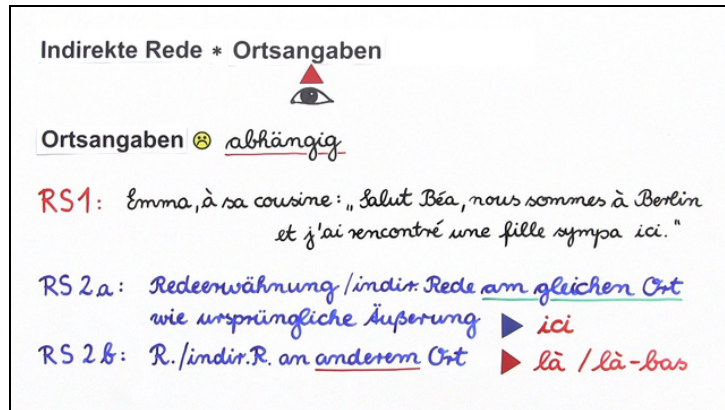 Indirekte Rede * Ortsangaben
Ortsangaben ☹ abhängig
RS1: Emma, à sa cousine: „Salut Béa, nous sommes à Berlin
et j'ai rencontré une fille sympa ici."
RS 2a: Redeerwähnung/indir. Rede am gleichen Ort
wie ursprüngliche Äußerung ▶ ici
RS 2b: R./indir.R. an anderem Ort ▶ là / là-bas